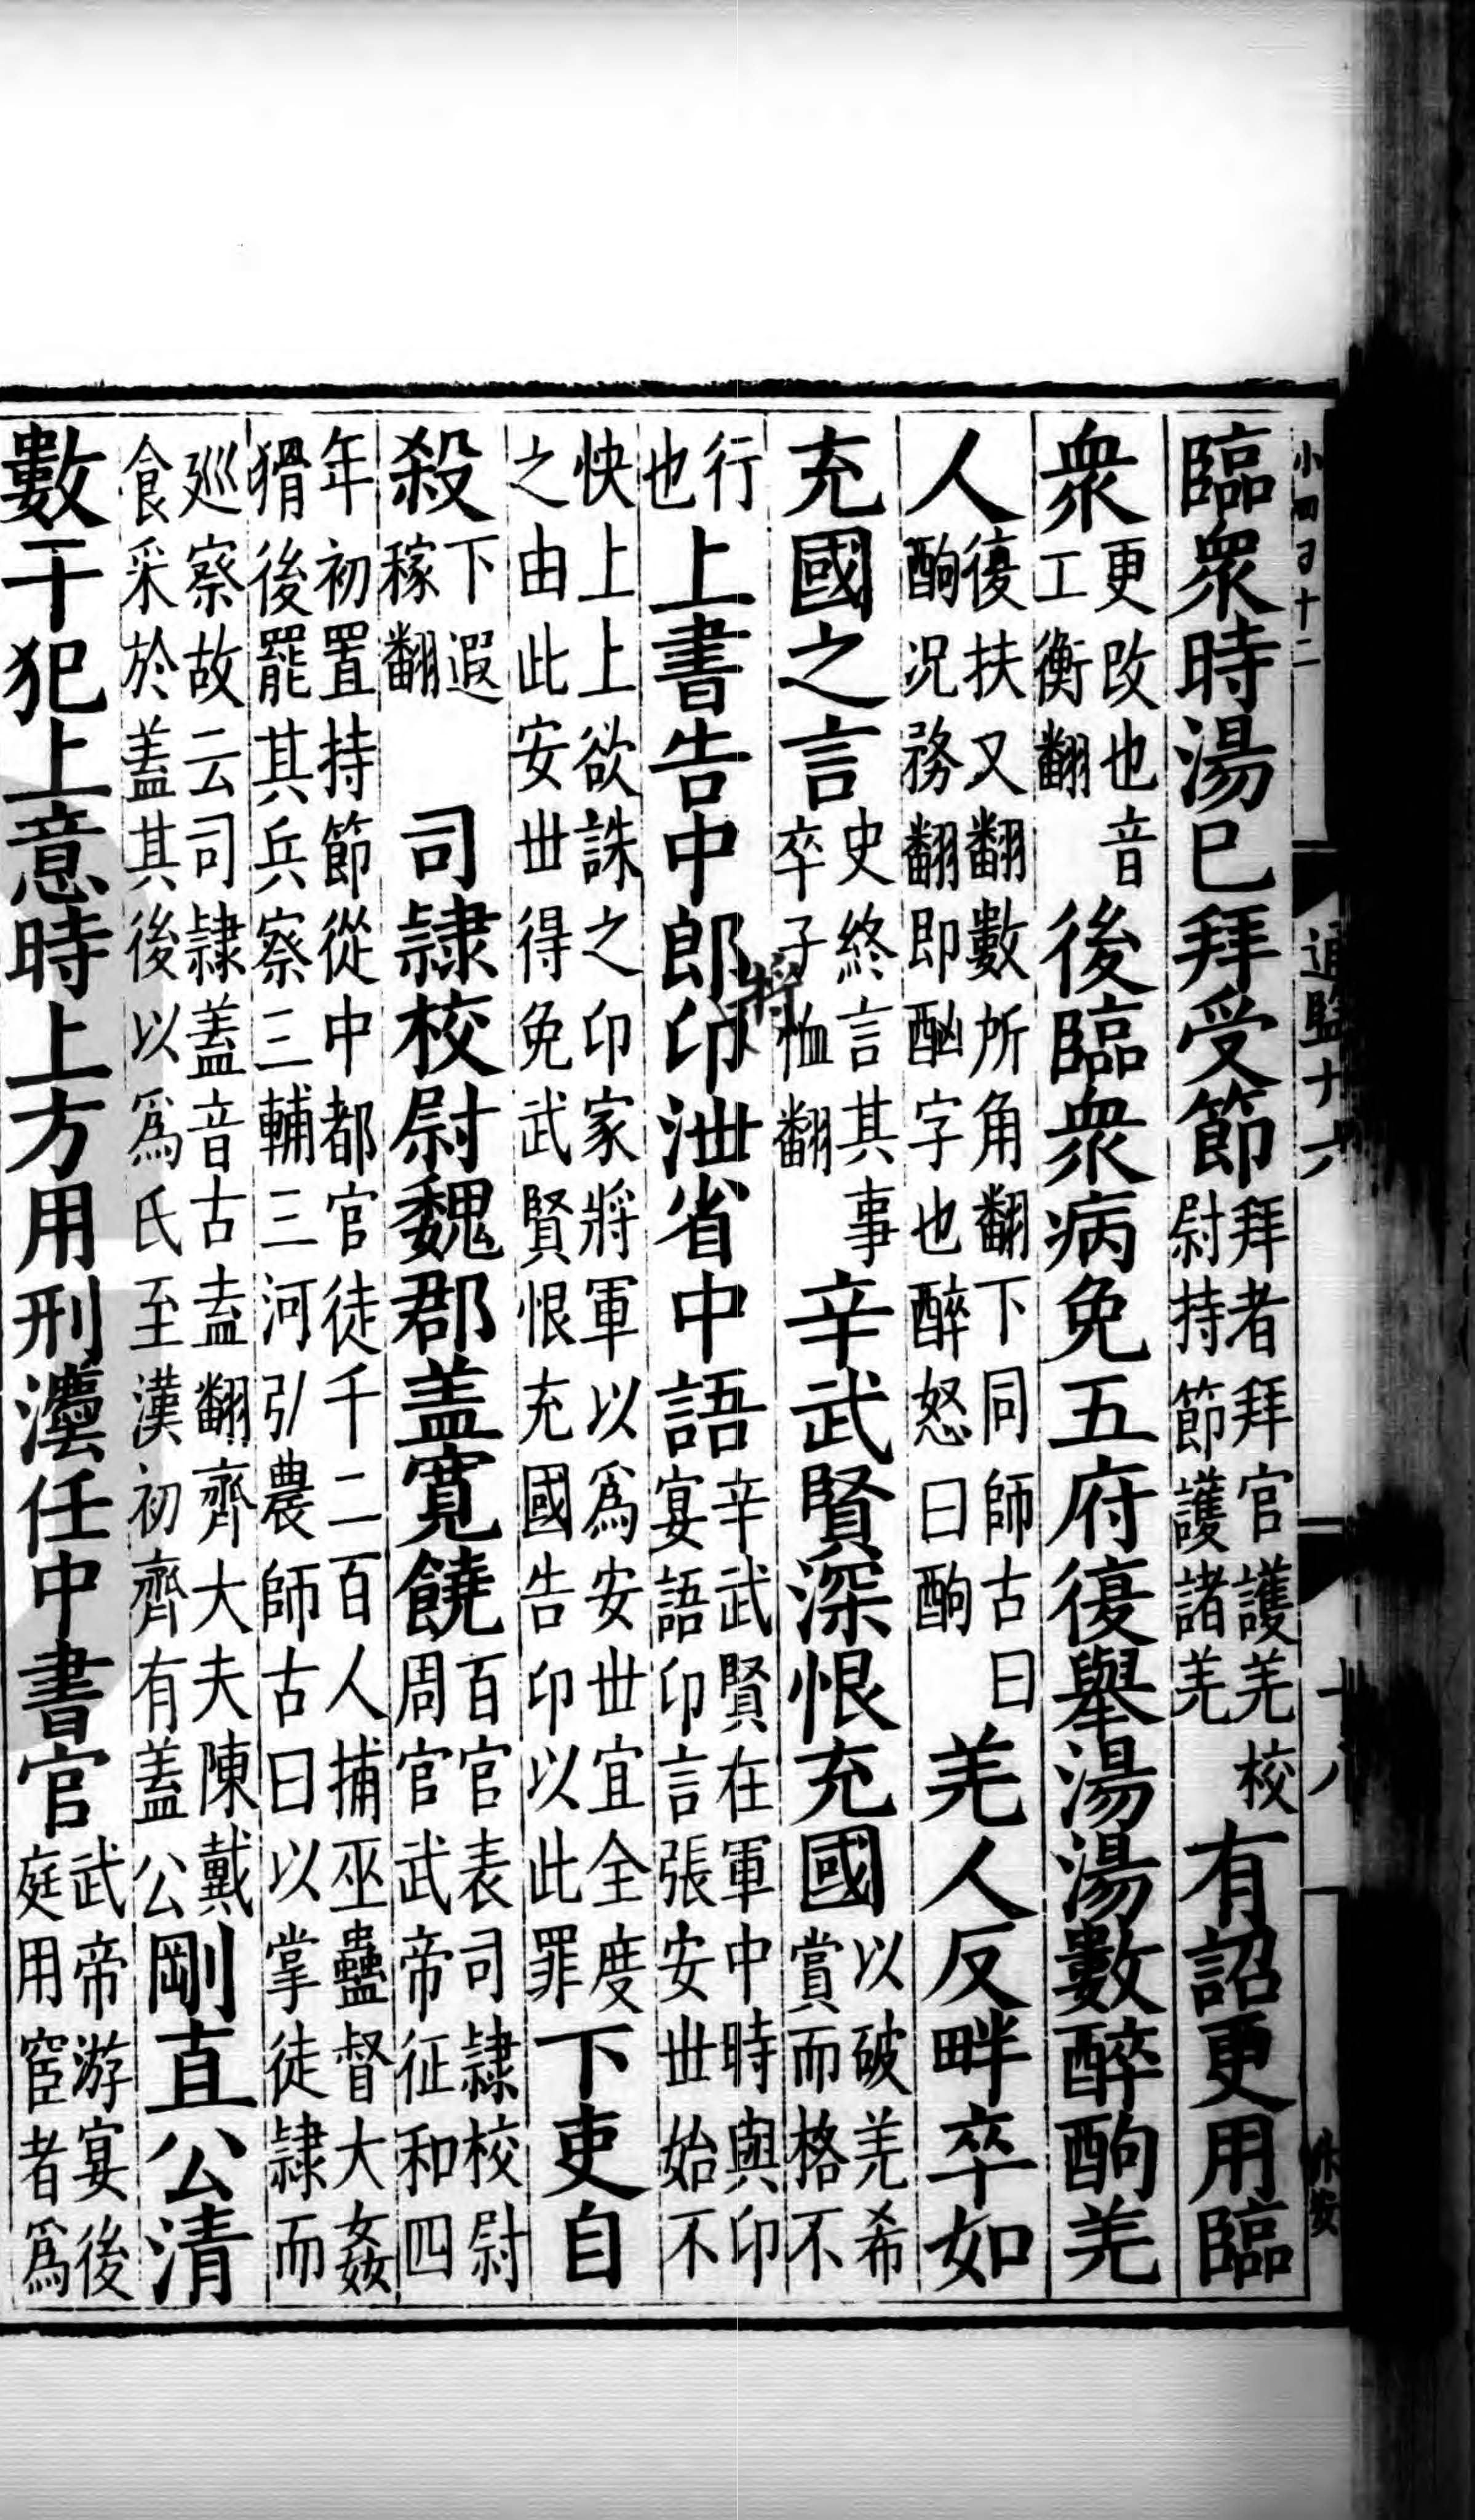 小四百十二
通鑑
十八
臨衆時湯已拜受節拜者拜官護羌校尉持節護諸羌有詔更用臨
衆更改也音工衡翻後臨衆病免五府復舉湯湯數醉酗羌
人復扶又翻數所角翻下同師古曰酗况務翻即酗字也醉怒曰酗羌人反畔卒如
充國之言史終言其事卒子恤翻辛武賢深恨充國以破羌希賞而格不
行也上書告中郎將卬泄省中語辛武賢在軍中時與卬宴語卬言張安世始不
快上上欲誅之卬家將軍以爲安世宜全度之由此安世得免武賢恨充國告卬以此罪下吏自
殺下遐稼翻司隷校尉魏郡蓋寬饒百官表司隷校尉周官武帝征和四
年初置持節從中都官徒千二百人捕巫蠱督大姦猾後罷其兵察三輔三河引農師古曰以掌徒隷而
廵察故云司隷蓋音古盍翻齊大夫陳戴食采於蓋其後以爲氏至漢初齊有蓋公剛直公清
數干犯上意時上方用刑灋任中書官武帝游宴後庭用宦者爲